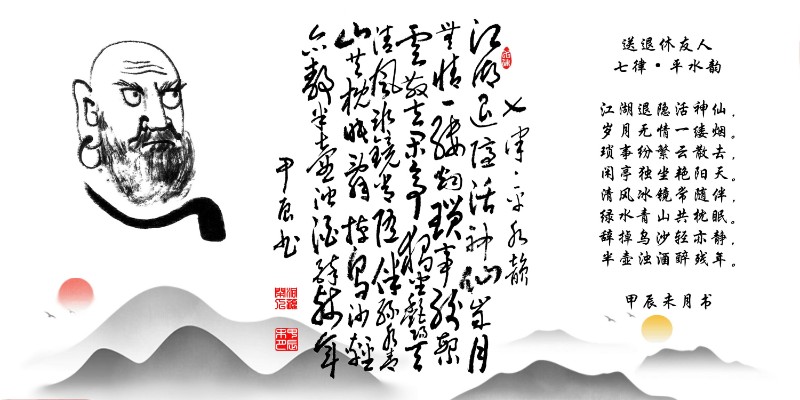 送退休友人
七律·平水韵
江湖退隐活神仙,
岁月无情一缕烟。
琐事纷繁云散去,
闲亭独坐艳阳天。
清风冰镜常随伴,
绿水青山共枕眠。
辞掉乌沙轻亦静,
半壶浊酒醉残年。
甲辰未月书
七律·平水韵
江湖退隐活神仙岁月
无情一缕烟琐事纷繁
云散去闲亭独坐艳阳天
清风冰镜常随伴绿水青
山共枕眠辞掉乌沙轻
亦静半壶浊酒醉残年
甲辰书